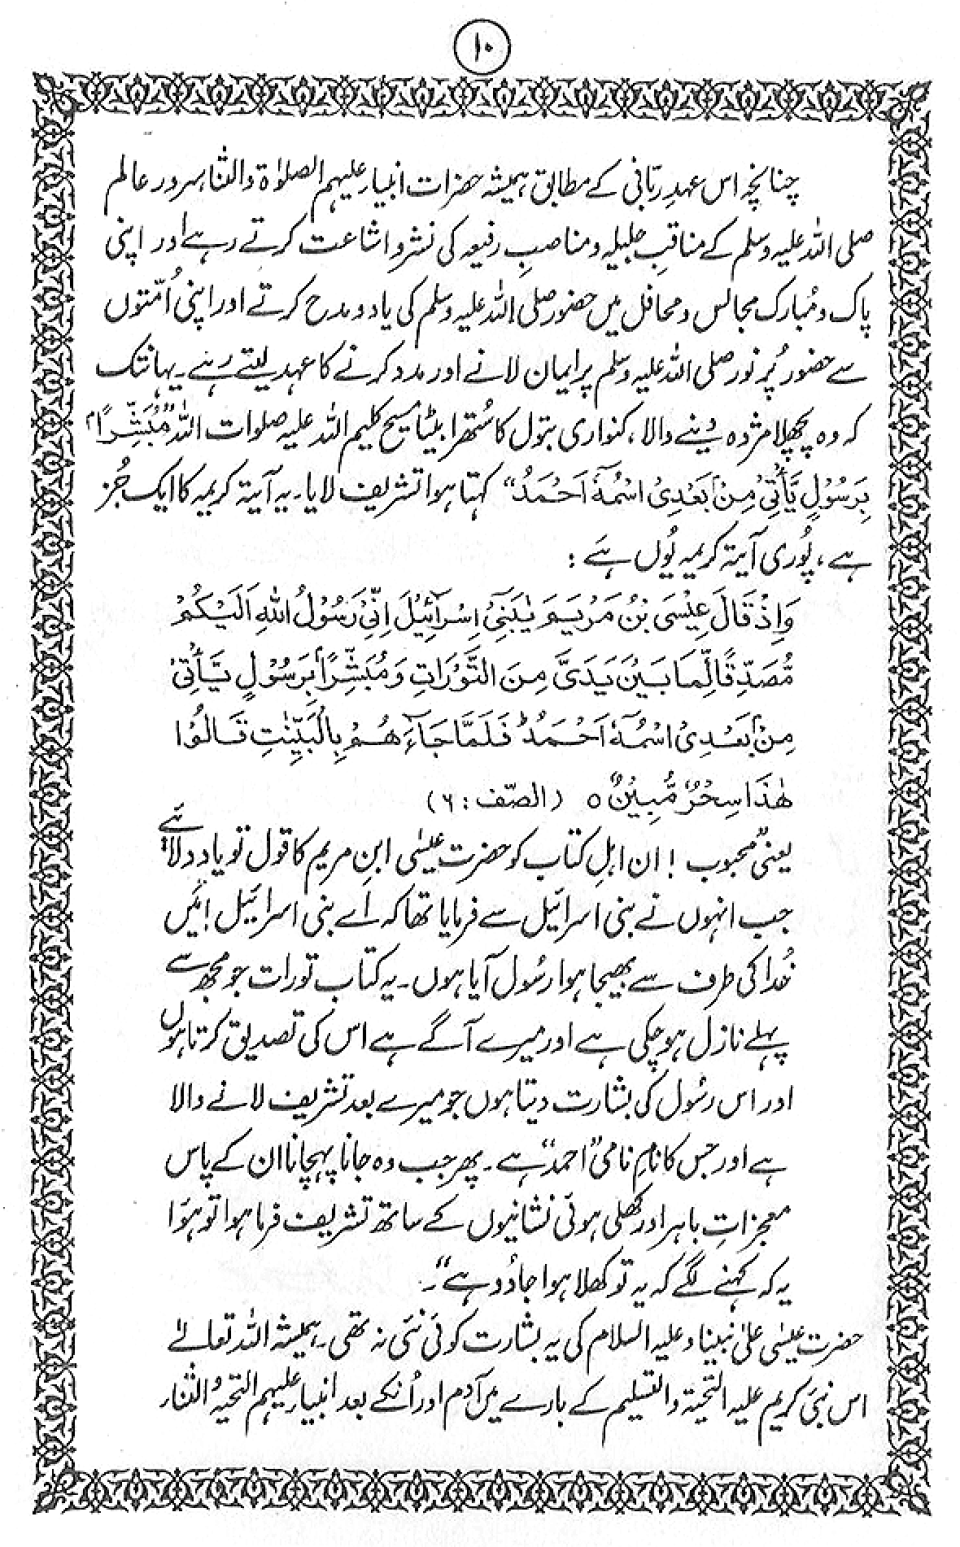 ۱۰
چنانچہ اس عہدِ ربّانی کے مطابق ہمیشہ حضرات انبیاء علیہم الصلوٰۃ والثناء سرور عالم
صلی اللہ علیہ وسلم کے مناقبِ جلیلہ و مناصبِ رفیعہ کی نشر و اشاعت کرتے رہے اور اپنی
پاک و مُبارک مجالس و محافل میں حضور صلی اللہ علیہ وسلم کی یاد و مدح کرتے اور اپنی اُمّتوں
سے حضور پُر نور صلی اللہ علیہ وسلم پر ایمان لانے اور مدد کرنے کا عہد لیتے رہے۔ یہانتک
کہ وہ پچھلا مژدہ دینے والا، کنواری بتول کا ستھرا بیٹا مسیح کلیم اللہ علیہ صلوات اللہ ”مُبَشِّرًاۢ
بِرَسُوْلٍ یَّاْتِیْ مِنْۢ بَعْدِی اسْمُہٗٓ اَحْمَدُ“ کہتا ہوا تشریف لایا۔ یہ آیۃ کریمہ کا ایک جُز
ہے، پُوری آیۃ کریمہ یُوں ہَے :
وَاِذْ قَالَ عِیْسَی بْنُ مَرْیَمَ یٰبَنِیْٓ اِسْرَآئِیْلَ اِنِّیْ رَسُوْلُ اللہِ اِلَیْکُمْ
مُّصَدِّقًا لِّمَا بَیْنَ یَدَیَّ مِنَ التَّوْرَاتِ وَمُبَشِّرًاۢ بِرَسُوْلٍ یَّاْتِیْ
مِنْۢ بَعْدِی اسْمُہٗٓ اَحْمَدُ ؕ فَلَمَّا جَآءَھُمْ بِالْبَیِّنٰتِ قَالُوْا
ھٰذَا سِحْرٌ مُّبِیْنٌ ٥ (الصّف : ٦)
یعنی ”محبوب ! ان اہلِ کتاب کو حضرت عیسٰی ابنِ مریم کا قول تو یاد دلائیے
جب انہوں نے بنی اسرائیل سے فرمایا تھا کہ اے بنی اسرائیل ! مَیں
خُدا کی طرف سے بھیجا ہوا رسُول آیا ہوں۔ یہ کتاب تورات جو مجھ سے
پہلے نازل ہو چکی ہے اور میرے آگے ہے اس کی تصدیق کرتا ہوں
اور اس رسُول کی بشارت دیتا ہوں جو میرے بعد تشریف لانے والا
ہے اور جس کا نامِ نامی ”احمد“ ہے۔ پھر جب وہ جانا پہچانا ان کے پاس
معجزاتِ باہر اور کھلی ہوئی نشانیوں کے ساتھ تشریف فرما ہوا تو ہوَا
یہ کہ کہنے لگے کہ یہ تو کھلا ہوا جادُو ہے“۔
حضرت عیسٰی علٰی نبینا و علیہ السلام کی یہ بشارت کوئی نئی نہ تھی۔ ہمیشہ اللہ تعالےٰ
اس نبی کریم علیہ التحیۃ والتسلیم کے بارے میں آدم اور اُنکے بعد انبیاء علیہم التحیۃ والثناء